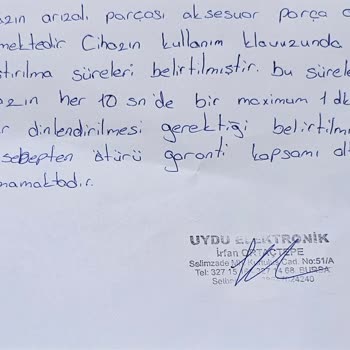 azın arızalı parçası aksesuar parça o
mektedir. Cihazın kullanım klavuzunda
ştırılma süreleri belirtilmiştir. bu sürele
azın her 10 sn'de bir maximum 1 dk
r dinlendirilmesi gerektiği belirtilmi
sebepten ötürü garanti kapsamı dı
namaktadır.
UYDU ELEKTRONİK
İrfan ORTAÇTEPE
Selimzade Mh. Cad. No:51/A
Tel: 327 15 14 68 BURSA
24240